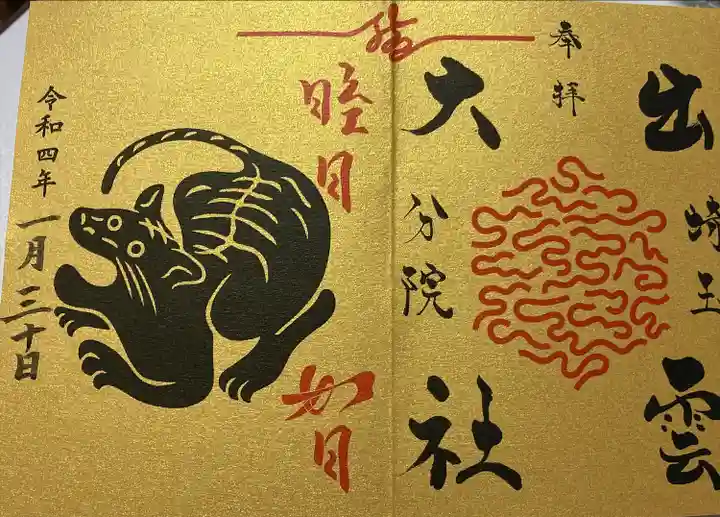 出雲
埼玉
奉拝
大社
分院
睦月
如月
令和四年
一月三十日